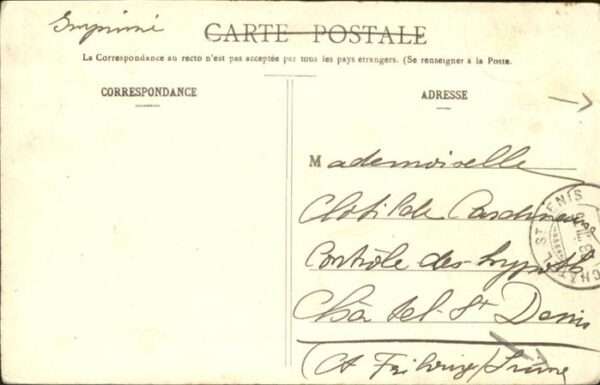 Imprimé
CARTE POSTALE
La Correspondance au recto n'est pas acceptée par tous les pays étrangers. (Se renseigner à la Poste.
CORRESPONDANCE
ADRESSE
Mademoiselle
Clotilde
Contrôle des hypoth.
Châtel-St Denis
(Ct Fribourg/Suisse
ST DENIS